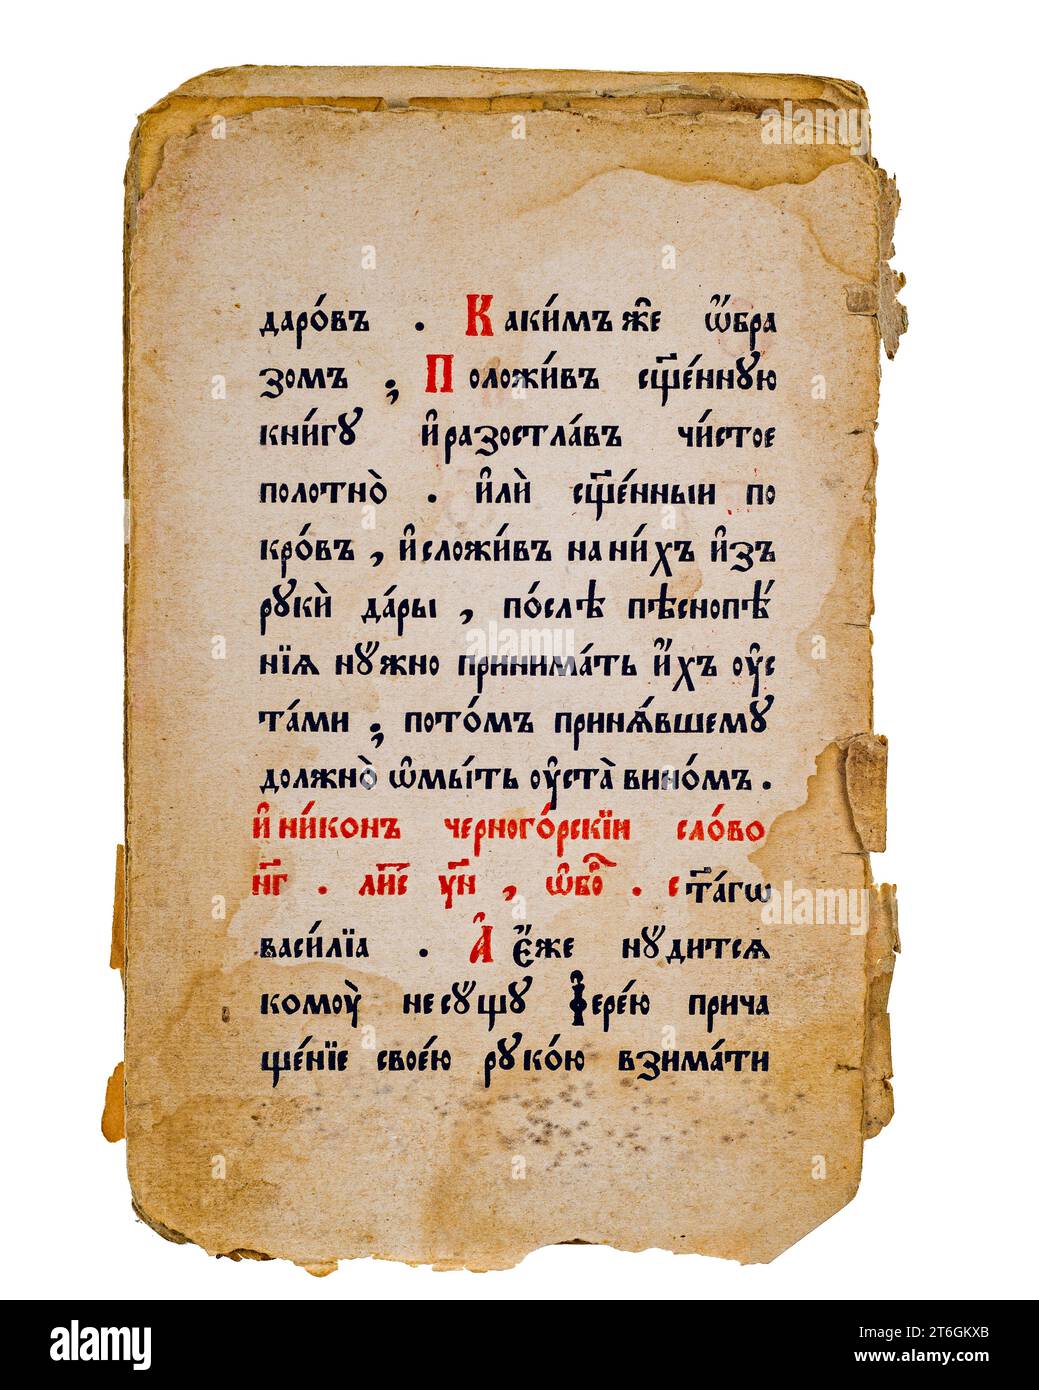 даро́въ . Каки́мъ же ѡ҆бра
зомъ ; Положи́въ сщ҃е́нную
кни́гу и҆ разостла́въ чи́стое
полотно̀ . и҆лѝ сщ҃е́нныи по
кро́въ , и҆ сложи́въ на ни́хъ и҆зъ
рукѝ да́ры , по́слѣ пѣснопѣ́
нїѧ ну́жно принима́ть и҆́хъ ᲂу҆с
та́ми ; пото́мъ принѧ́вшему
должно̀ ѡ҆мы́ть ᲂу҆ста̀ вино́мъ .
и҆ ни́конъ черного́рскїи сло́во
н҃г . ли́с ун҃ , ѡ҆бо . с т҃а́гѡ
васи́лїа . А҆ е҆́же ну́дитсѧ
комоу̀ не су́щу і҆ере́ю прича
ще́нїе свое́ю руко́ю взима́ти
alamy
Image ID: 2T6GKXB
www.alamy.com